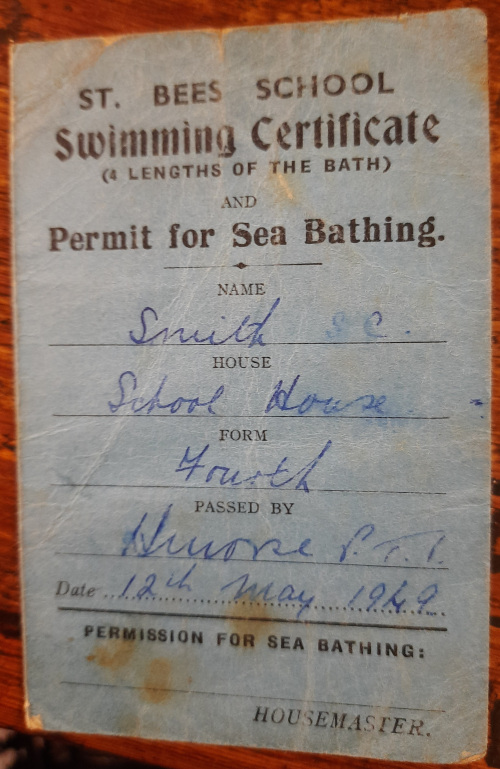 ST. BEES SCHOOL
Swimming Certificate
(4 LENGTHS OF THE BATH)
AND
Permit for Sea Bathing.
NAME
Smith S C.
HOUSE
School House
FORM
Fourth
PASSED BY
P. T. I.
Date 12th May 1949
PERMISSION FOR SEA BATHING:
HOUSEMASTER.